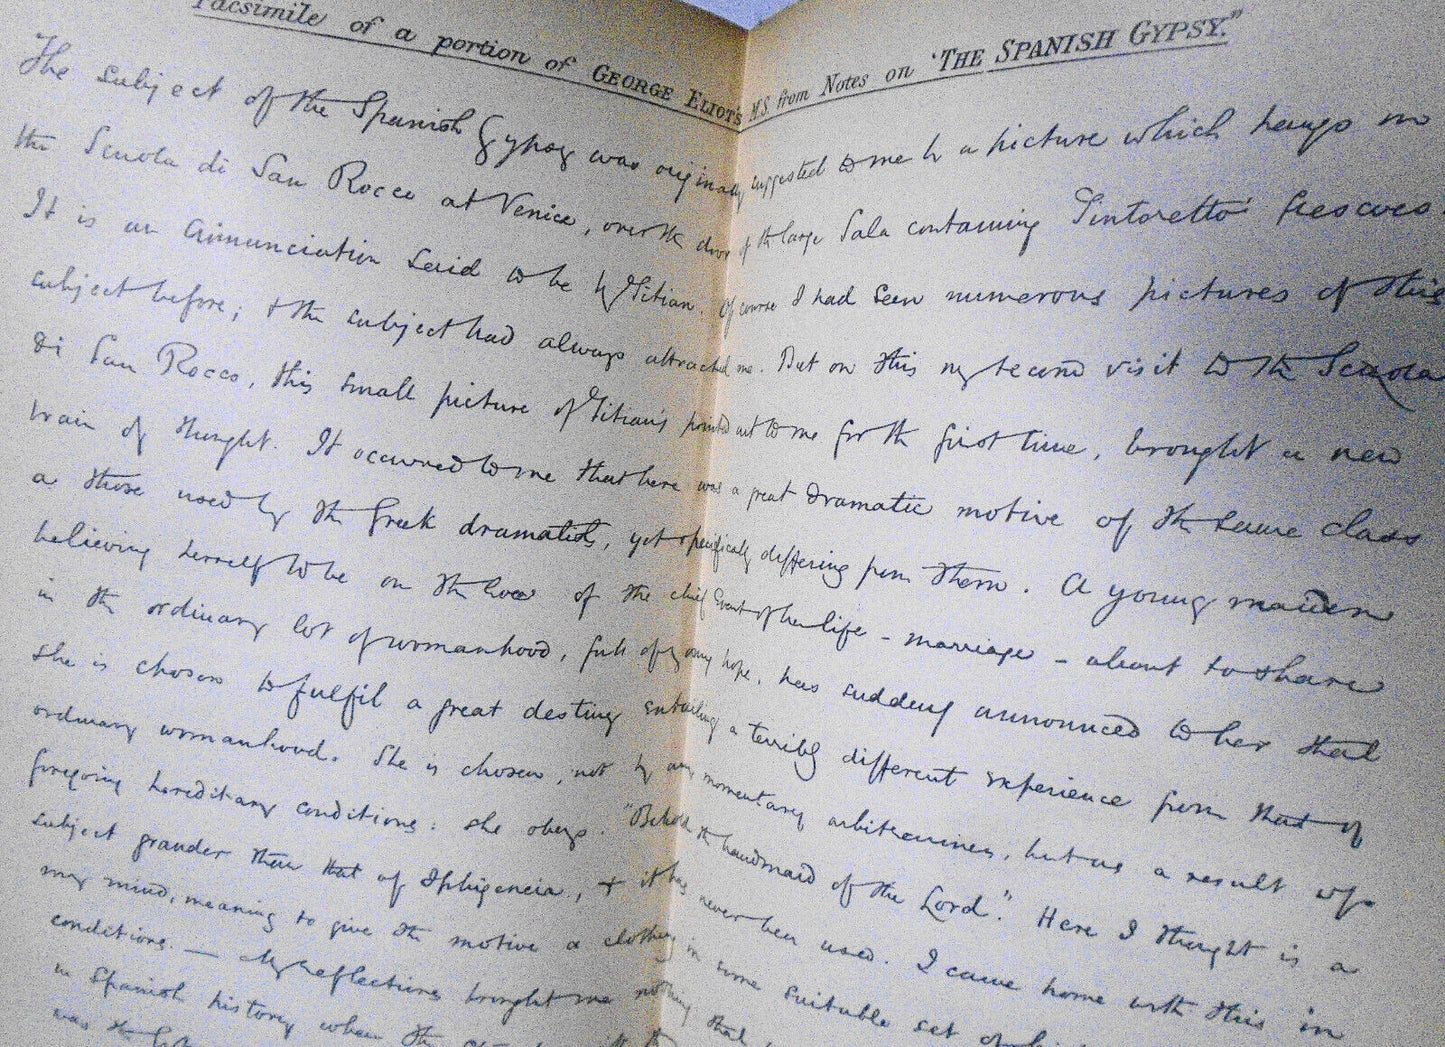 Facsimile of a portion of GEORGE ELIOT'S M.S. from Notes on 'THE SPANISH GYPSY."
The subject of the Spanish Gypsy was originally suggested to me by a picture which hangs in
the Scuola di San Rocco at Venice, over the door of the large Sala containing Tintoretto's frescoes.
It is an Annunciation said to be by Titian. Of course I had seen numerous pictures of this
subject before; & the subject had always attracted me. But on this my second visit to the Scuola
di San Rocco, this small picture of Titian's pointed out to me for the first time, brought a new
train of thought. It occurred to me that here was a great dramatic motive of the same class
as those used by the Greek dramatists, yet specifically differing from them. A young maiden
believing herself to be on the eve of the chief event of her life – marriage – about to share
in the ordinary lot of womanhood, full of young hope, has suddenly announced to her that
she is chosen to fulfil a great destiny entailing a terribly different experience from that of
ordinary womanhood. She is chosen, not by any momentary arbitrariness, but as a result of
foregoing hereditary conditions: she obeys. "Behold the handmaid of the Lord." Here I thought is a
subject grander than that of Iphigeneia, & it has never been used. I came home with this in
my mind, meaning to give the motive a clothing in some suitable set of
conditions. — My reflections brought me nothing that
in Spanish history when the
was the